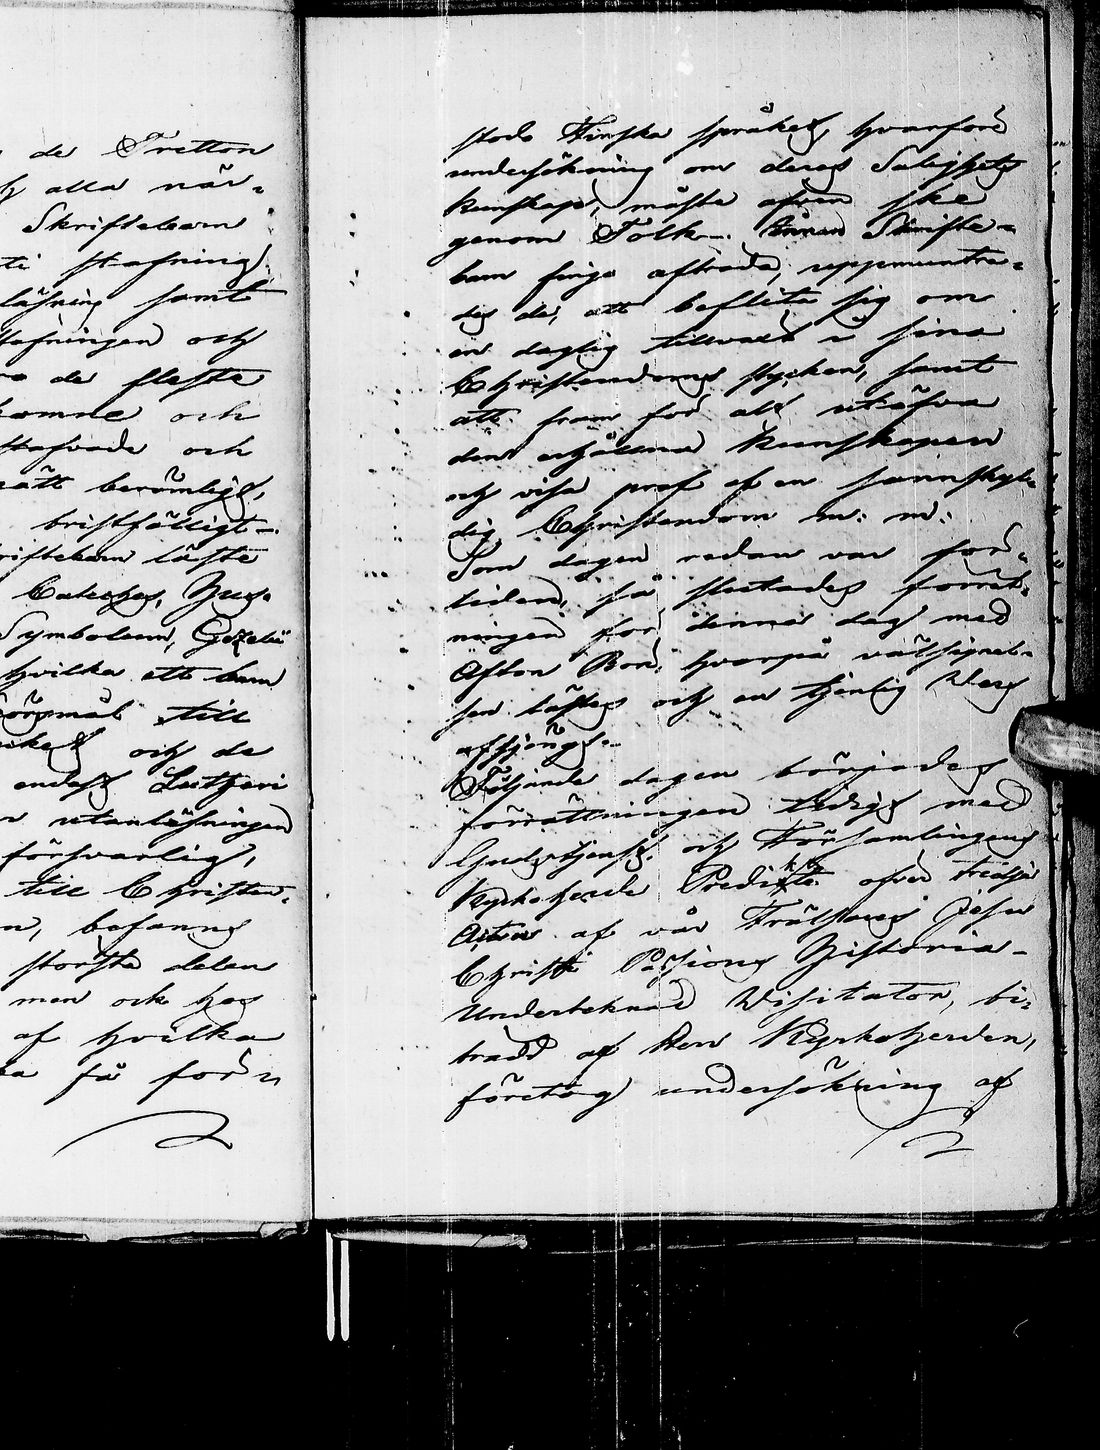 de Tretton
alla när-
Skriftebarn
stafning
läsning samt
stafningen och
de fleste
komne och
stafvade och
rätt berömligt,
bristfälligt
Skriftebarn läste
Cateches, Hus-
Symbolum, Gezelii
hvilka ett barn
spörsmål till
och de
endast Lutheri
utanläsningen
försvarlig,
till Christen-
befanns
största delen
men ock hos
af hvilka
få för-
stodo Finska språket, hvarföre
undersökning om deras Salighets
kunskap, måste äfven ske
genom Tolk. Innan Skrifte-
barn fingo aftråda, uppmuntra-
des de, att beflita sig om
en daglig tillvext i sina
Christendoms stycken, samt
att fram för allt utöfva
den erhållna kunskapen
och visa prof af en sannskyl-
dig Christendom m: m:
Som dagen redan var for-
liden, så slutades förrätt-
ningen for denna dag med
Afton Bön, hvarpå välsignel-
sen lästes och en tjenlig Vers
afsjöngs.
Följande dagen börjades
förrättningen tidigt med
Gudstjenst. och Församlingens
Kyrkoherde Predikte öfver tredje
Acten af vår Frälsares Jesu
Christi Passions Historia
Undertecknad Visitator, bi-
trädd af Herr Kyrkoherden,
företog undersökning af